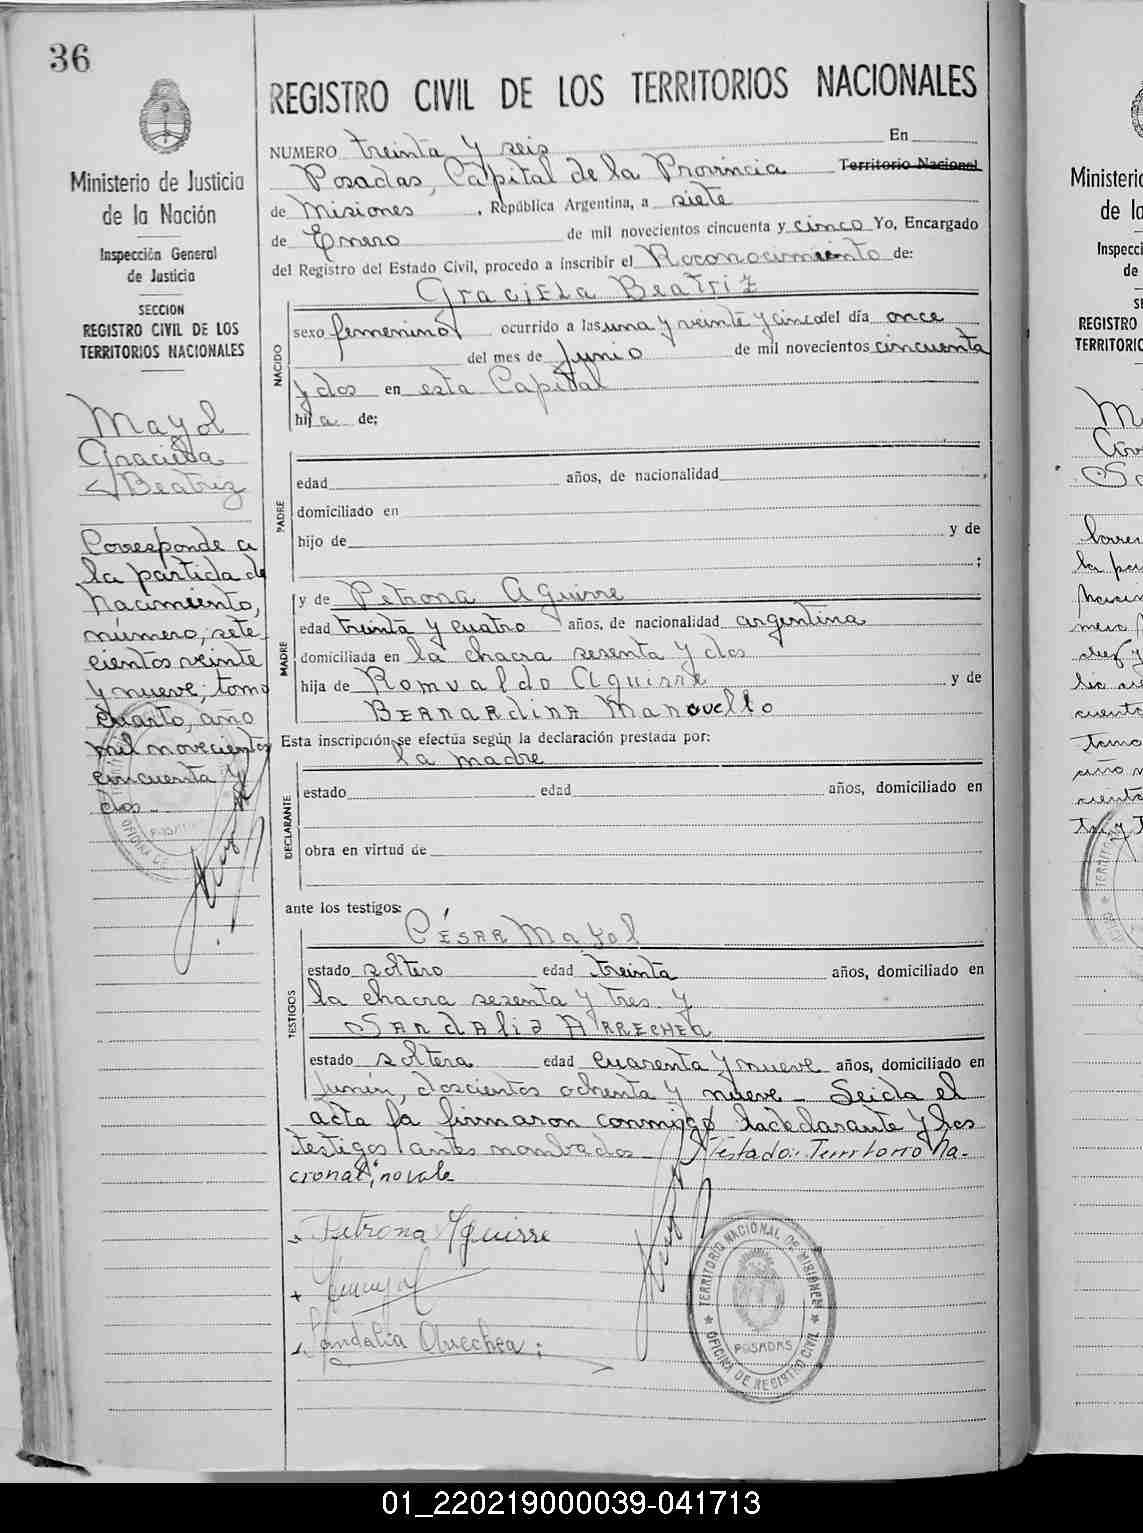 36
REGISTRO CIVIL DE LOS TERRITORIOS NACIONALES
Ministerio de Justicia
de la Nación
Inspección General
de Justicia
SECCION
REGISTRO CIVIL DE LOS
TERRITORIOS NACIONALES
Mayol
Graciela
Beatriz
Corresponde a
la partida de
Nacimiento,
número, sete
cientos veinte
y nueve, tomo
cuarto, año
mil novecientos
cincuenta y
dos.-
NUMERO treinta y seis En
Posadas, Capital de la Provincia Territorio Nacional
de Misiones, República Argentina, a siete
de Enero de mil novecientos cincuenta y cinco Yo, Encargado
del Registro del Estado Civil, procedo a inscribir el Reconocimiento de:
Graciela Beatriz
NACIDO
sexo femenino ocurrido a las una y veinte y cinco del día once
del mes de Junio de mil novecientos cincuenta
y dos en esta Capital
hija de:
PADRE
edad años, de nacionalidad
domiciliado en
hijo de y de
;
MADRE
y de Petrona Aguirre
edad treinta y cuatro años, de nacionalidad argentina
domiciliada en la chacra sesenta y dos
hija de Romualdo Aguirre y de
Bernardina Manovello
Esta inscripción se efectúa según la declaración prestada por:
la madre
DECLARANTE
estado edad años, domiciliado en
obra en virtud de
ante los testigos:
TESTIGOS
César Mayol
estado soltero edad treinta años, domiciliado en
la chacra sesenta y tres y
Sandalia Arrechea
estado soltera edad cuarenta y nueve años, domiciliado en
Junín, doscientos ochenta y nueve - Leida el
acta la firmaron conmigo la declarante y los
testigos antes nombrados - Testado: Territorio Na-
cional, no vale
Petrona Aguirre
Sandalia Arrechea
TERRITORIO NACIONAL DE MISIONES
POSADAS
OFICINA DE REGISTRO CIVIL
01_220219000039-041713